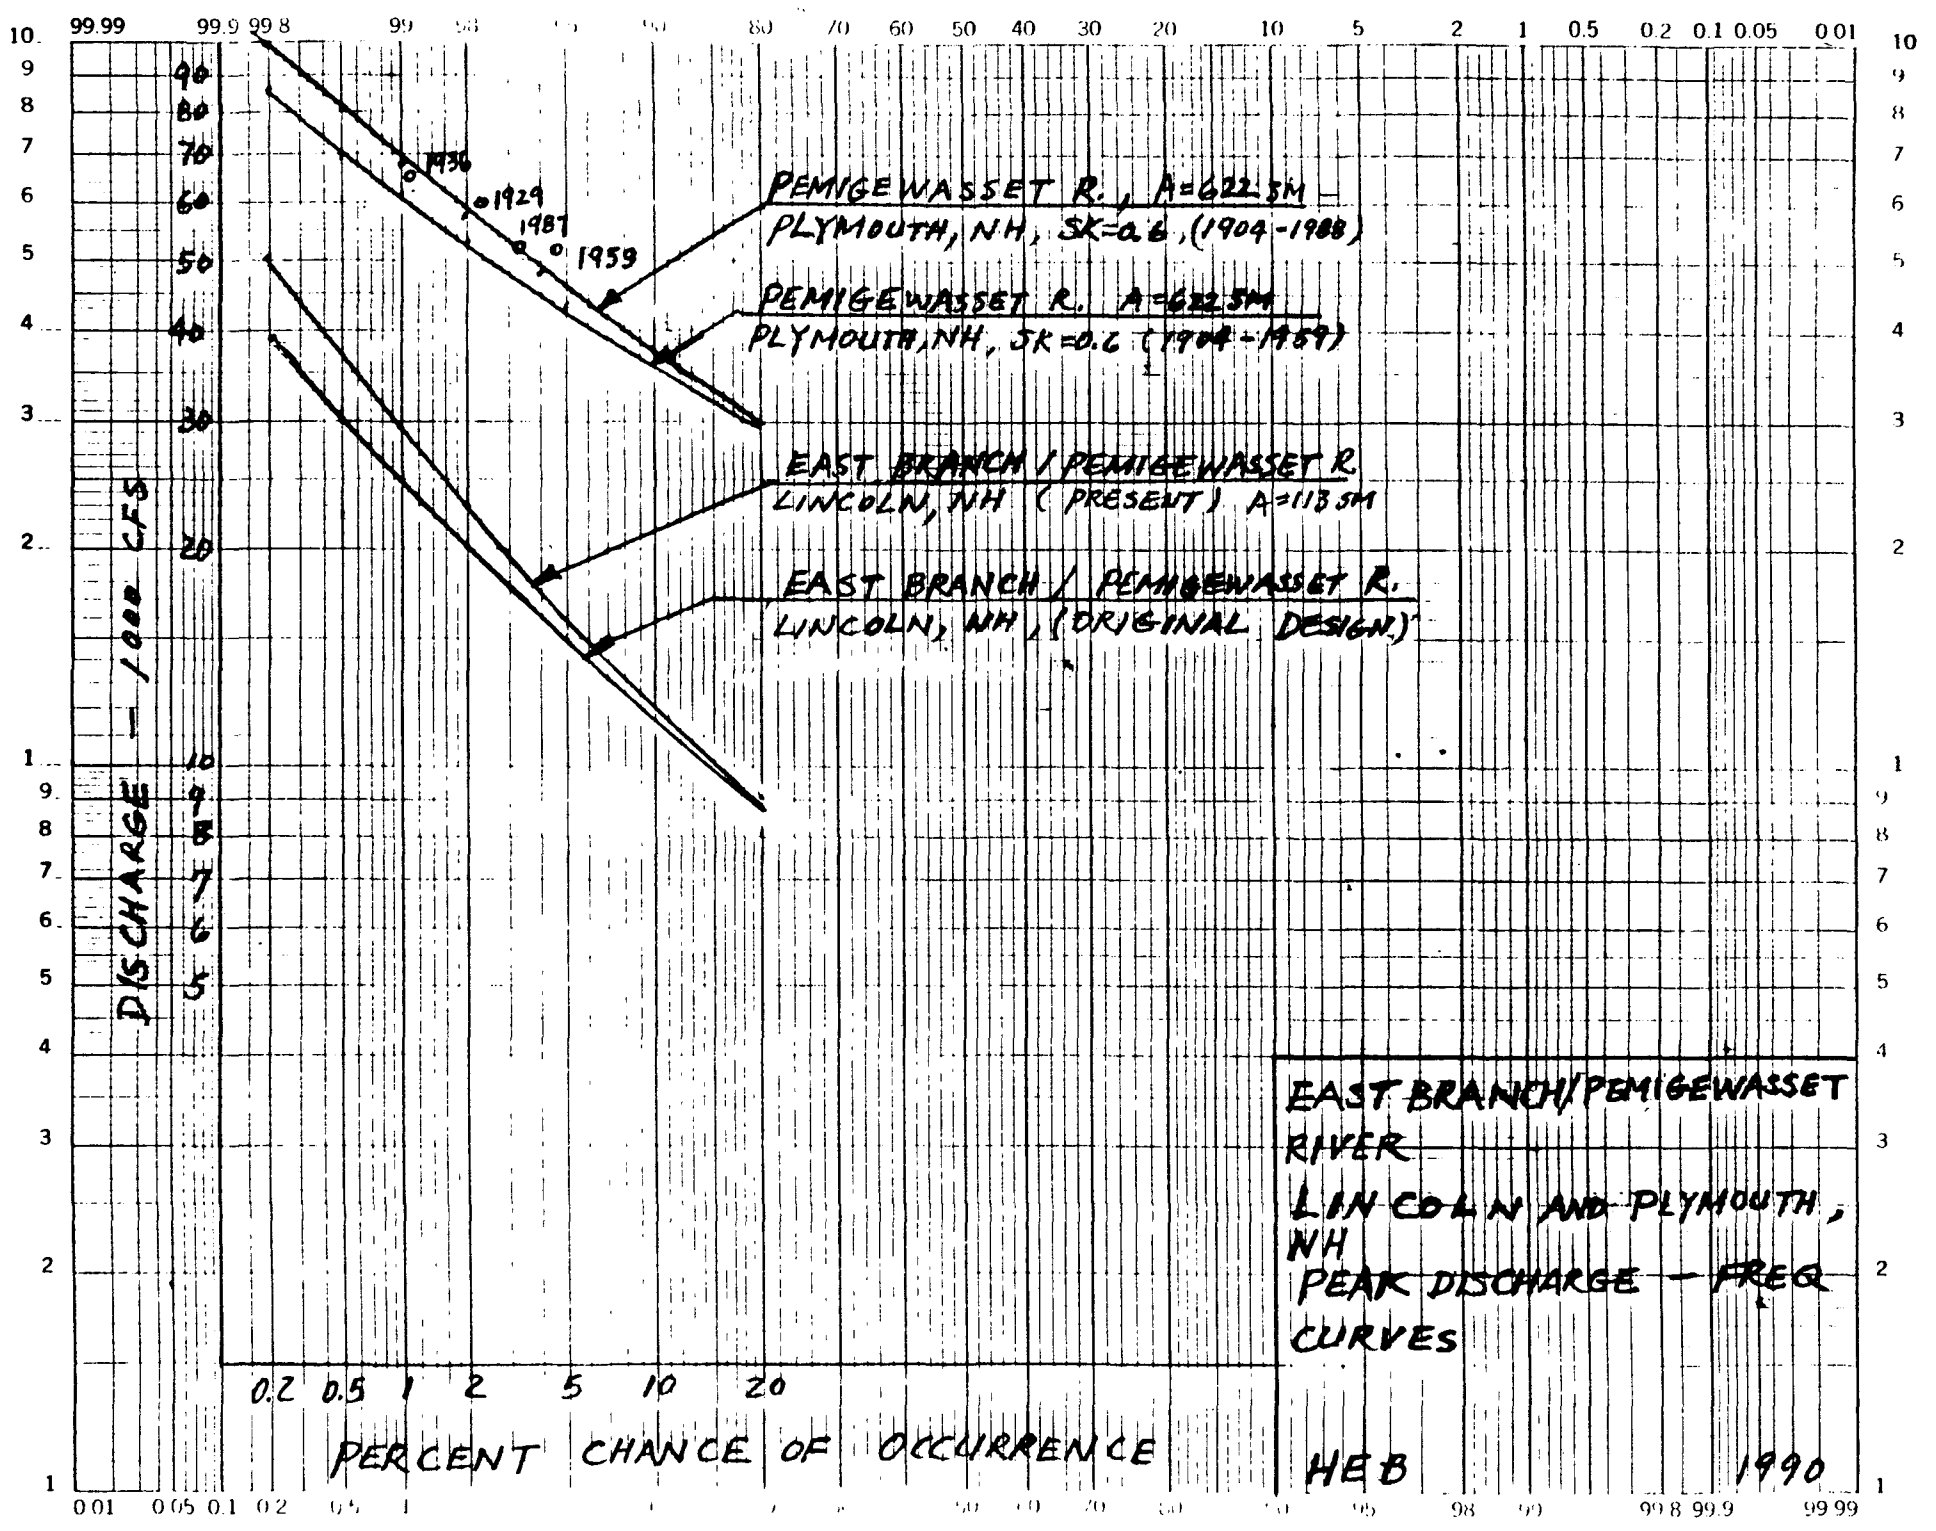 99.99 99.9 99.8 99 98 80 70 60 50 40 30 20 10 5 2 1 0.5 0.2 0.1 0.05 0.01
10 9 8 7 6 5 4 3 2 1 9 8 7 6 5 4 3 2 1
90 80 70 60 50 40 30 20 10 9 8 7 6 5
DISCHARGE - 1000 CFS
1936
1929
1987
1959
PEMIGEWASSET R., A=622 SM
PLYMOUTH, NH, SK=0.6, (1904-1988)
PEMIGEWASSET R. A=622 SM
PLYMOUTH, NH, SK=0.6 (1904-1959)
EAST BRANCH / PEMIGEWASSET R
LINCOLN, NH (PRESENT) A=113 SM
EAST BRANCH / PEMIGEWASSET R.
LINCOLN, NH, (ORIGINAL DESIGN)
10 9 8 7 6 5 4 3 2 1 9 8 7 6 5 4 3 2 1
0.2 0.5 1 2 5 10 20
PERCENT CHANCE OF OCCURRENCE
EAST BRANCH/PEMIGEWASSET
RIVER
LINCOLN AND PLYMOUTH,
NH
PEAK DISCHARGE - FREQ
CURVES
HEB 1990
0.01 0.05 0.1 0.2 0.5 1 98 99 99.8 99.9 99.99